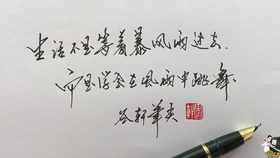 生活不是等着暴风雨过去，
而是学会在风雨中跳舞